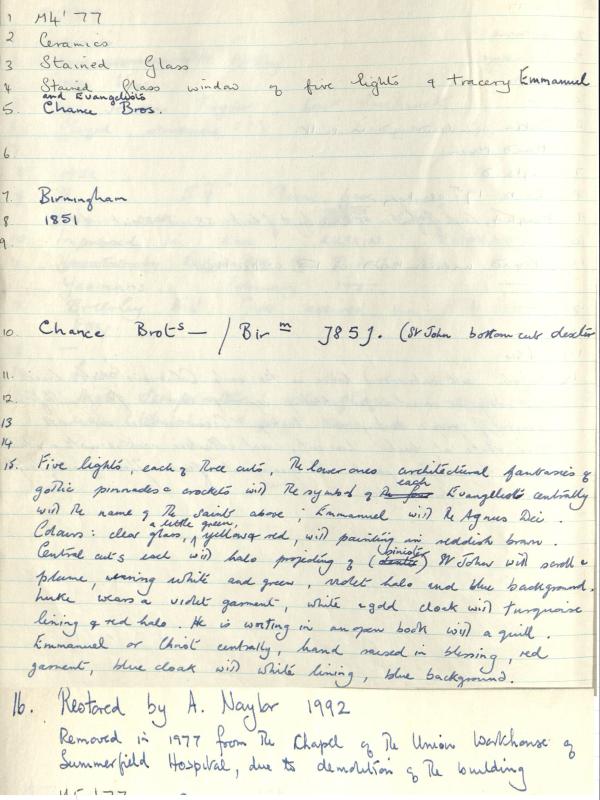 1 M4'77
2 Ceramics
3 Stained Glass
4 Stained Glass window of five lights & tracery Emmanuel
and Evangelists
5. Chance Bros.
6.
7. Birmingham
8 1851
9.
10. Chance Brots — / Bir m 1851. (St John bottom cut dexter
11.
12.
13
14
15. Five lights, each of three cuts, The lower ones architectural fantasies of
gothic pinnacles & crockets with the symbol of the four each Evangelists centrally
with the name of the saints above; Emmanuel with the Agnus Dei.
Colours: clear glass, a little green, yellow & red, with painting in reddish brown.
Central cuts each with halo projecting of (dexter sinister) St John with scroll &
plume, wearing white and green, violet halo and blue background.
Luke wears a violet garment, white & gold cloak with turquoise
lining & red halo. He is writing in an open book with a quill.
Emmanuel or Christ centrally, hand raised in blessing, red
garment, blue cloak with white lining, blue background.
16. Restored by A. Naylor 1992
Removed in 1977 from the Chapel of the Union Workhouse of
Summerfield Hospital, due to demolition of the building
M5'77